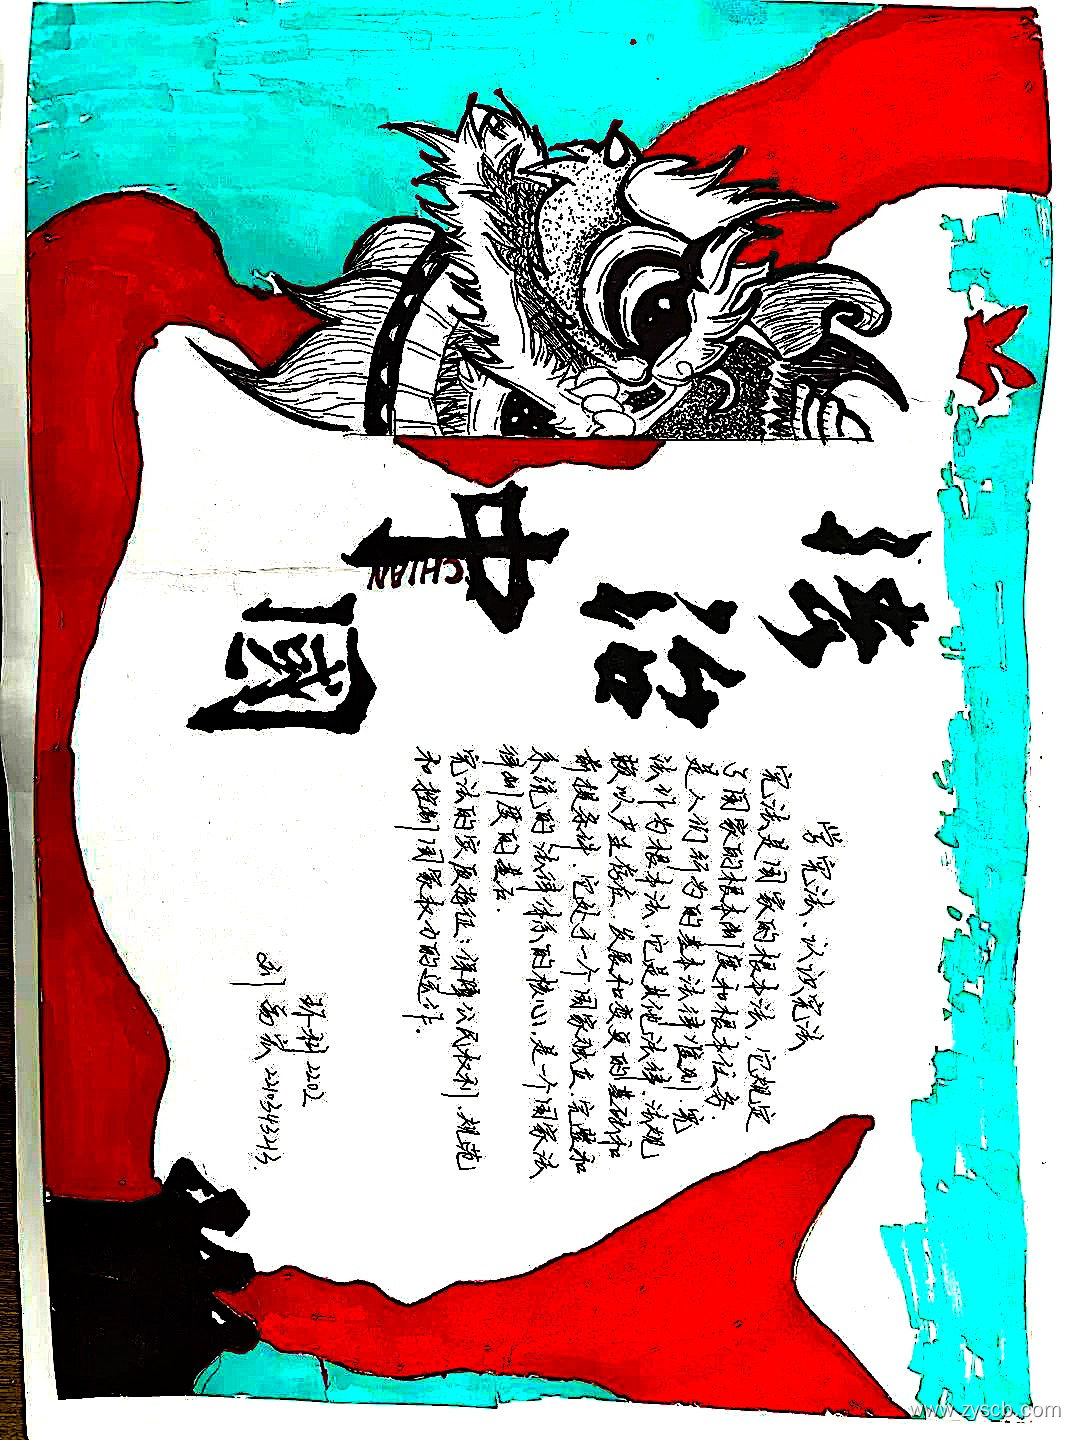 法治
中
CHIAN
國
学宪法、认识宪法
宪法是国家的根本法，它规定
了国家的根本制度和根本任务.
是人们行为的基本法律准则.宪
法作为根本法，它是其他法律、法规
赖以产生存在、发展和变更的基础和
前提条件.它处于一个国家独立、完整和
系统的法律体系的核心,是一个国家法
律制度的基石.
宪法的实质特征：保障公民权利、规范
和控制国家权力的运作.
环科2202
刘
www.zyscb.com